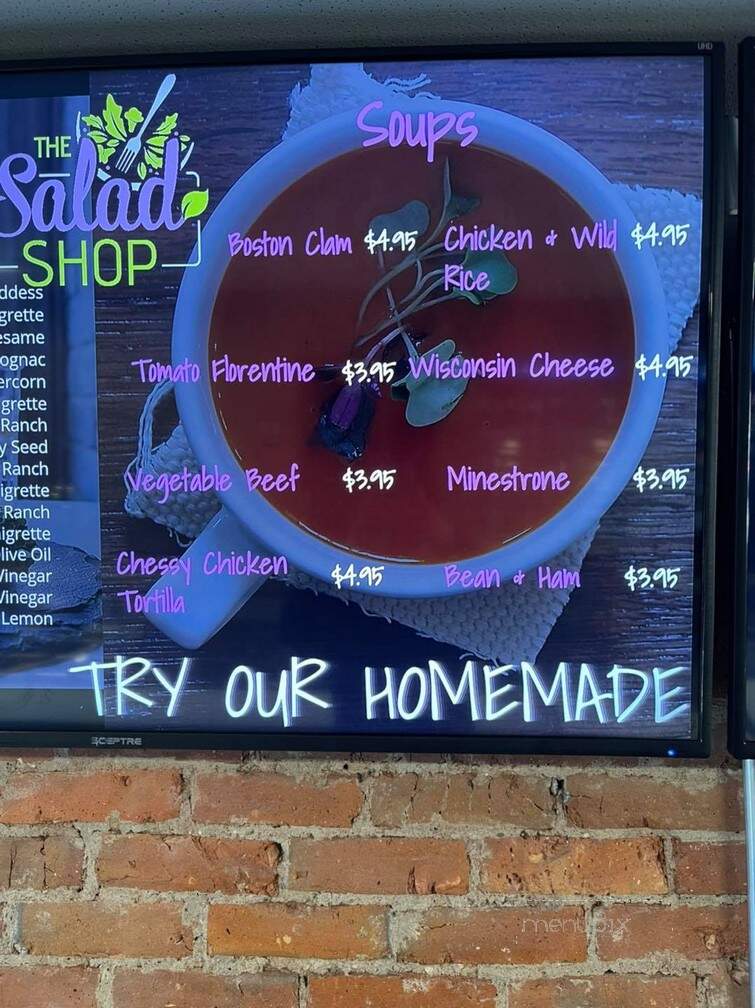 UHD
THE
Salad
SHOP
Soups
Boston Clam $4.95
Chicken & Wild $4.95
Rice
Tomato Florentine $3.95
Wisconsin Cheese $4.95
Vegetable Beef $3.95
Minestrone $3.95
Chessy Chicken $4.95
Tortilla
Bean & Ham $3.95
ddess
grette
esame
ognac
ercorn
grette
Ranch
y Seed
Ranch
igrette
Ranch
igrette
live Oil
Vinegar
Vinegar
Lemon
TRY OUR HOMEMADE
SCEPTRE
menupix